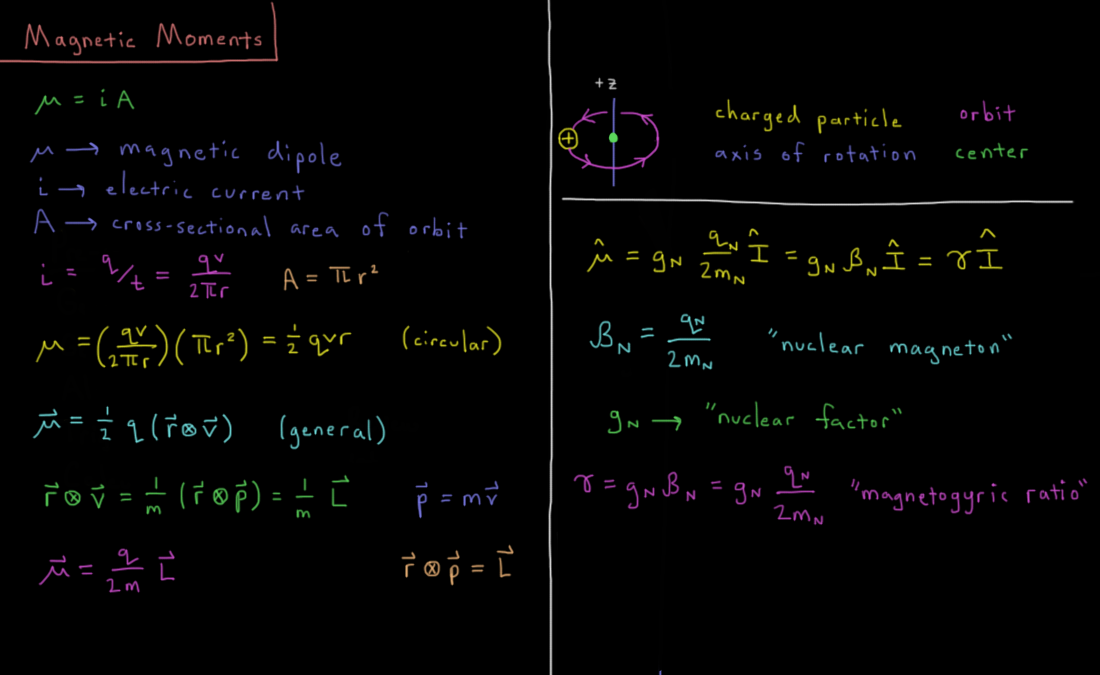 Magnetic Moments
μ = i A
μ → magnetic dipole
i → electric current
A → cross-sectional area of orbit
i = q/t = qv/2πr A = πr²
μ = (qv/2πr)(πr²) = ½ qvr (circular)
μ⃗ = ½ q (r⃗ ⊗ v⃗) (general)
r⃗ ⊗ v⃗ = 1/m (r⃗ ⊗ p⃗) = 1/m L⃗ p⃗ = mv⃗
μ⃗ = q/2m L⃗ r⃗ ⊗ p⃗ = L⃗
+z
+
charged particle orbit
axis of rotation center
μ̂ = g_N q_N/2m_N Î = g_N β_N Î = γ Î
β_N = q_N/2m_N "nuclear magneton"
g_N → "nuclear factor"
γ = g_N β_N = g_N q_N/2m_N "magnetogyric ratio"